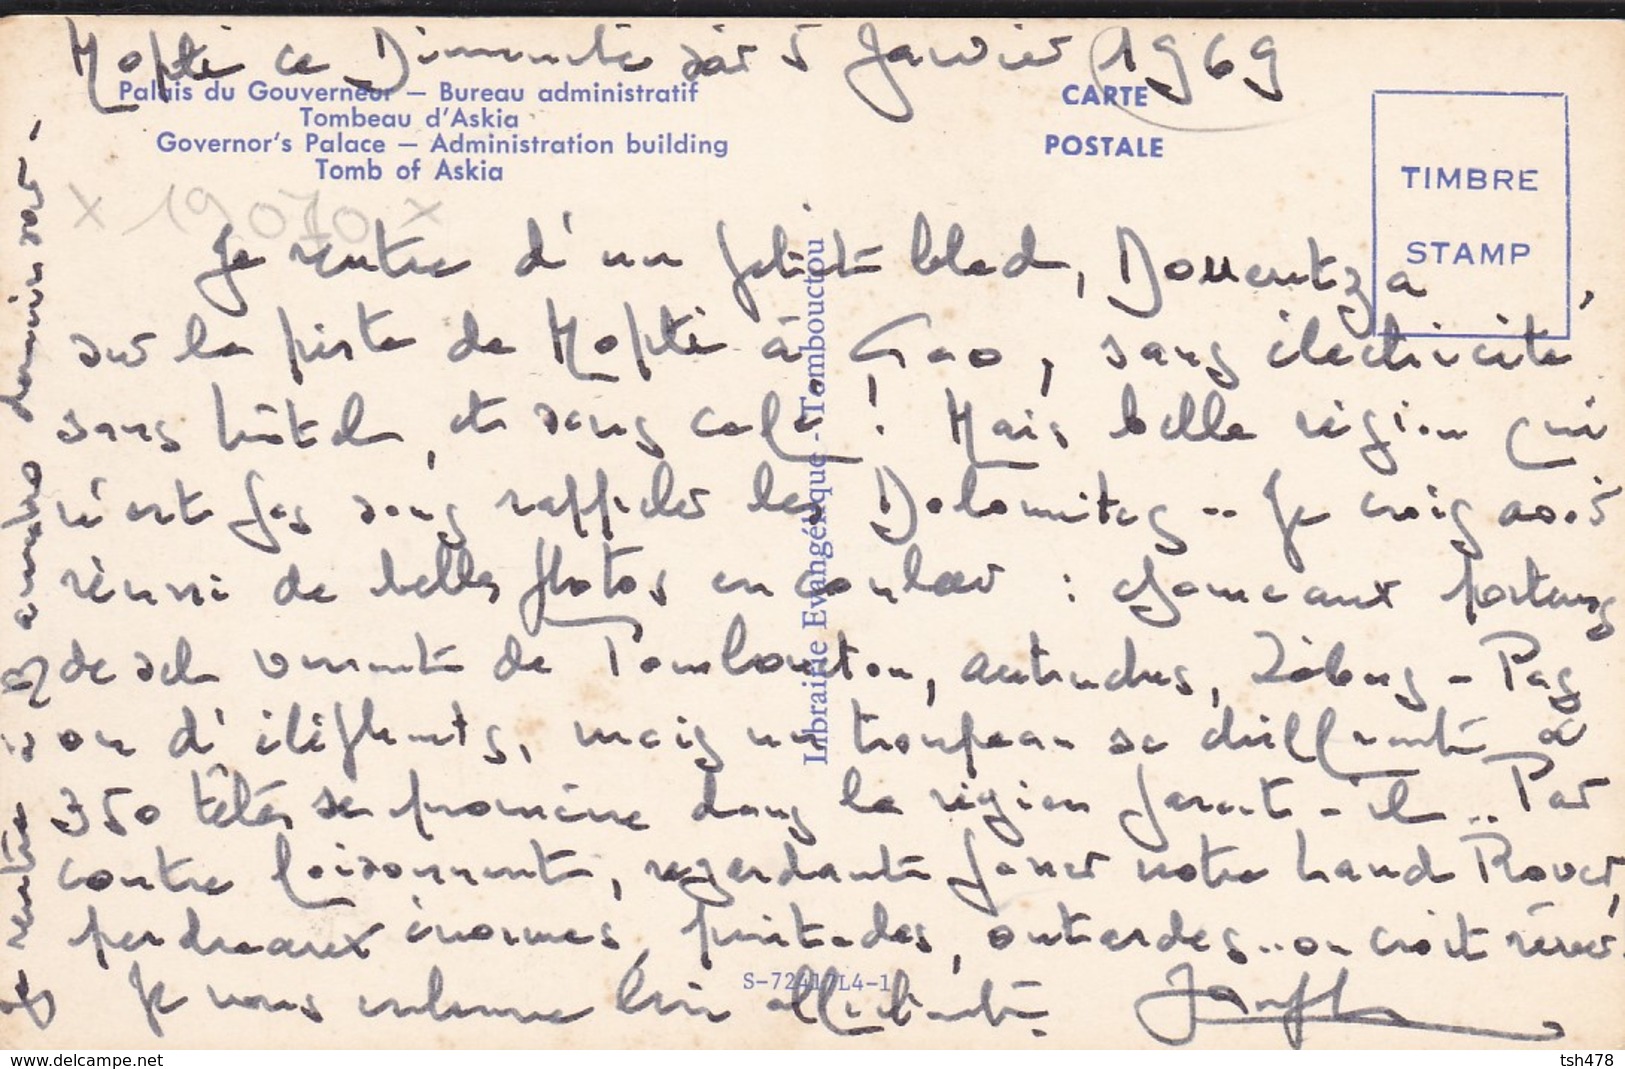 Mopti ce Dimanche soir 5 Janvier 1969
Palais du Gouverneur — Bureau administratif
Tombeau d'Askia
Governor's Palace — Administration building
Tomb of Askia
CARTE
POSTALE
TIMBRE
STAMP
x 19070 x
Je rentre d'un petit bled, Douentza,
sur la piste de Mopti à Gao, sans électricité,
sans hôtel, et sans café! Mais belle région qui
n'est pas sans rappeler les Dolomites .. Je crois avoir
réuni de belles photos en couleur : chameaux porteurs
de sel venant de Tombouctou, autruches, Zébus - Pas
d'éléphants, mais un troupeau de
350 têtes se promène dans la région paraît-il .. Par
contre foisonnent, regardant passer notre Land Rover,
perdreaux énormes, pintades, outardes .. on croit rêver.
Je vous embrasse bien affectueusement
Je rentre
dernier soir -
Librairie Evangélique - Tombouctou
S-72417L4-1
www.delcampe.net
tsh478